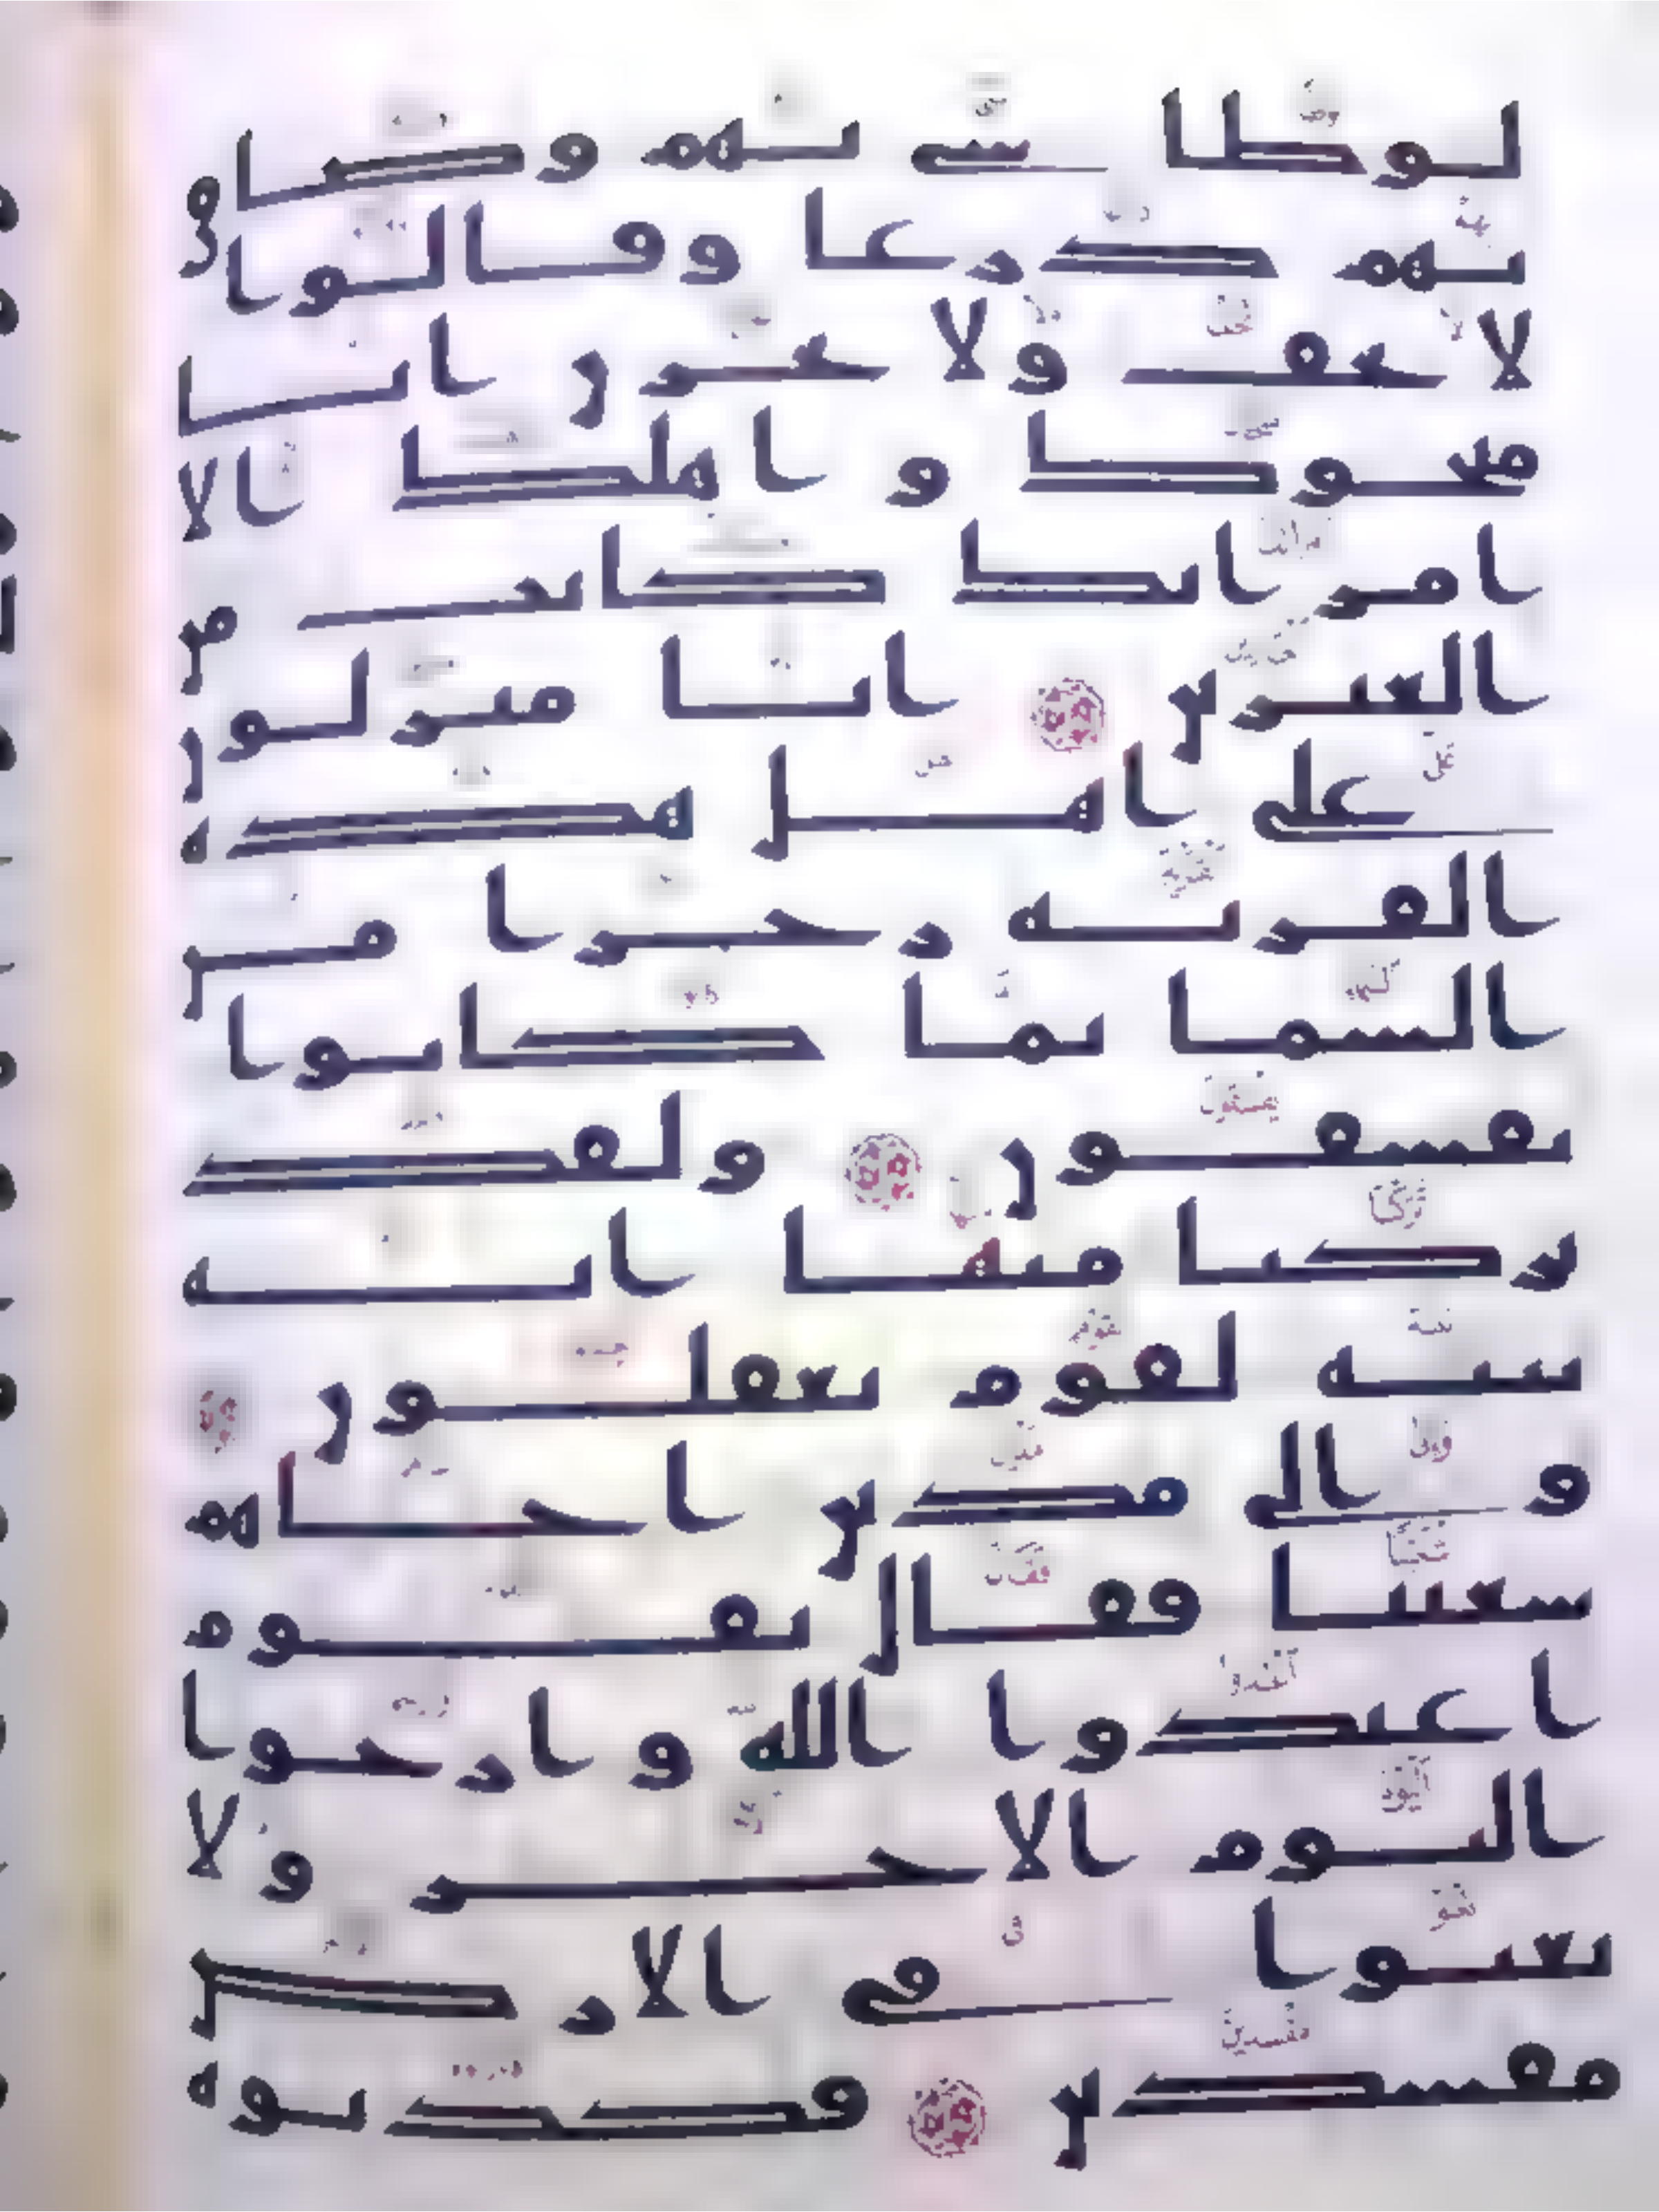 لوطا سى بهم وضاق
بهم ذرعا وقالوا
لا تخف ولا تحزن انا
منجوك و اهلك الا
امراتك كانت من
الغبرين انا منزلون
على اهل هذه
القرية رجزا من
السما بما كانوا
يفسقون ولقد
تركنا منها اية
بينة لقوم يعقلون
و الى مدين اخاهم
شعيبا فقال يقوم
اعبدوا الله و ارجوا
اليوم الاخر ولا
تعثوا فى الارض
مفسدين فكذبوه